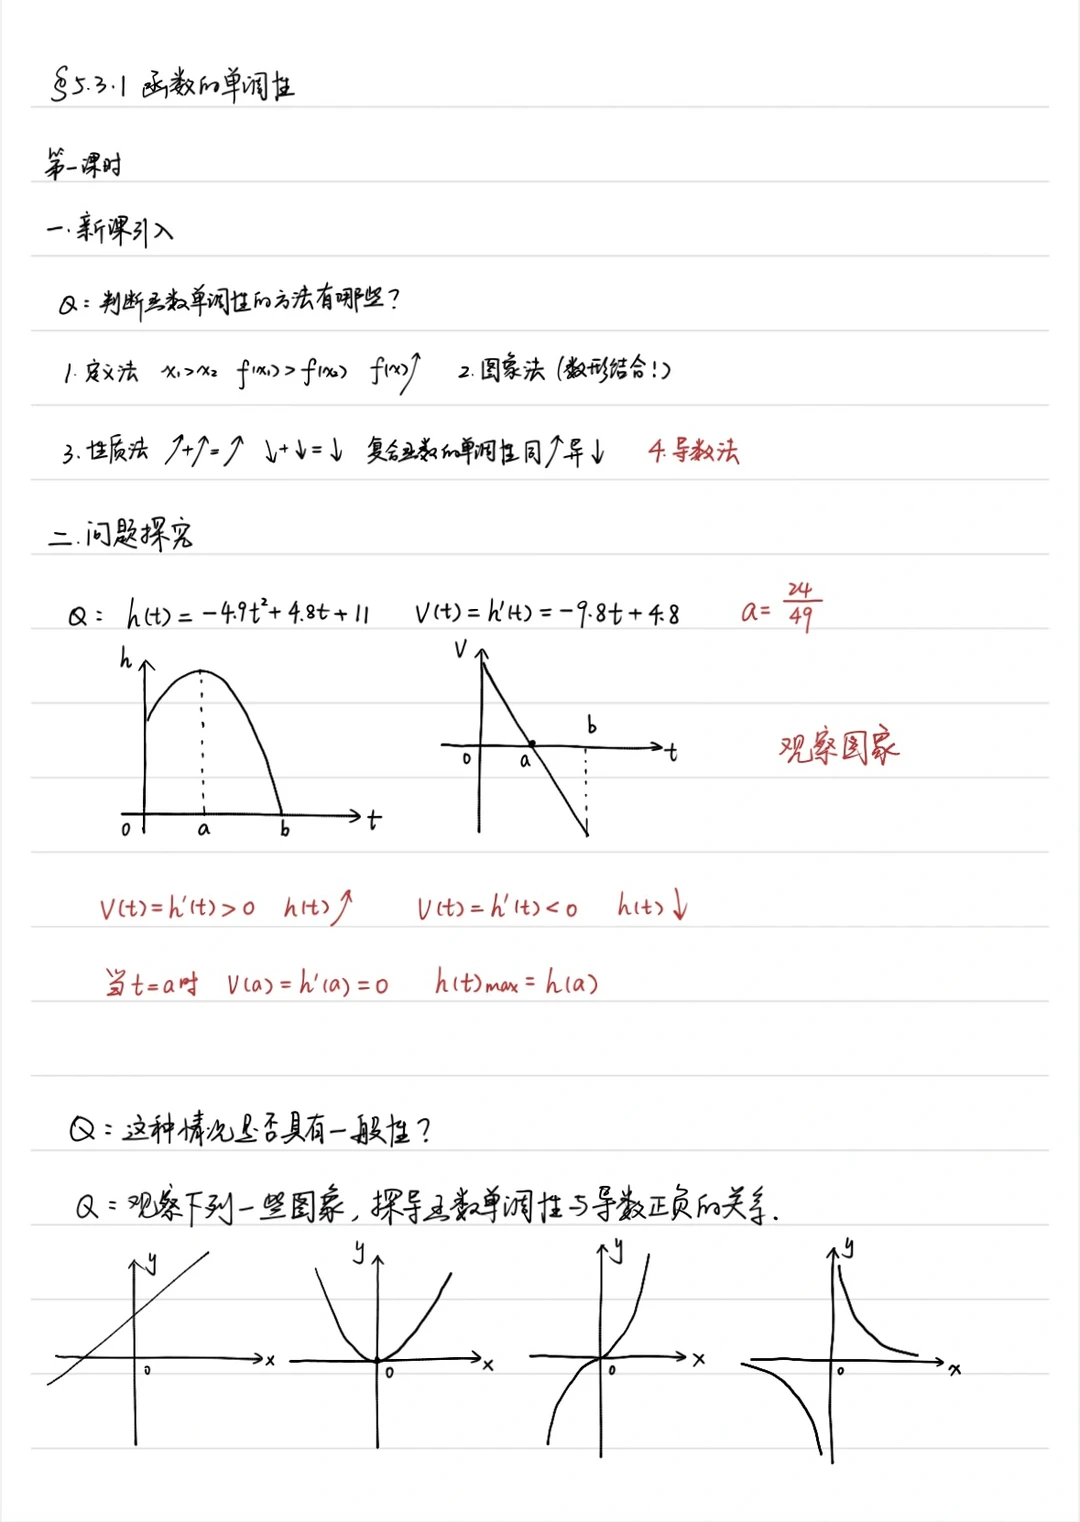 §5.3.1 函数的单调性
第一课时
一.新课引入
Q：判断函数单调性的方法有哪些？
1.定义法 x₁>x₂ f(x₁)>f(x₂) f(x)↑ 2.图象法（数形结合！）
3.性质法 ↑+↑=↑ ↓+↓=↓ 复合函数的单调性同↑异↓ 4.导数法
二.问题探究
Q： h(t)=-4.9t²+4.8t+11 V(t)=h'(t)=-9.8t+4.8 a=24/49
h V
b
0 a t 观察图象
0 a b t
V(t)=h'(t)>0 h(t)↑ V(t)=h'(t)<0 h(t)↓
当t=a时 V(a)=h'(a)=0 h(t)max=h(a)
Q：这种情况是否具有一般性？
Q：观察下列一些图象，探导函数单调性与导数正负的关系.
y y y y
0 x 0 x 0 x 0 x